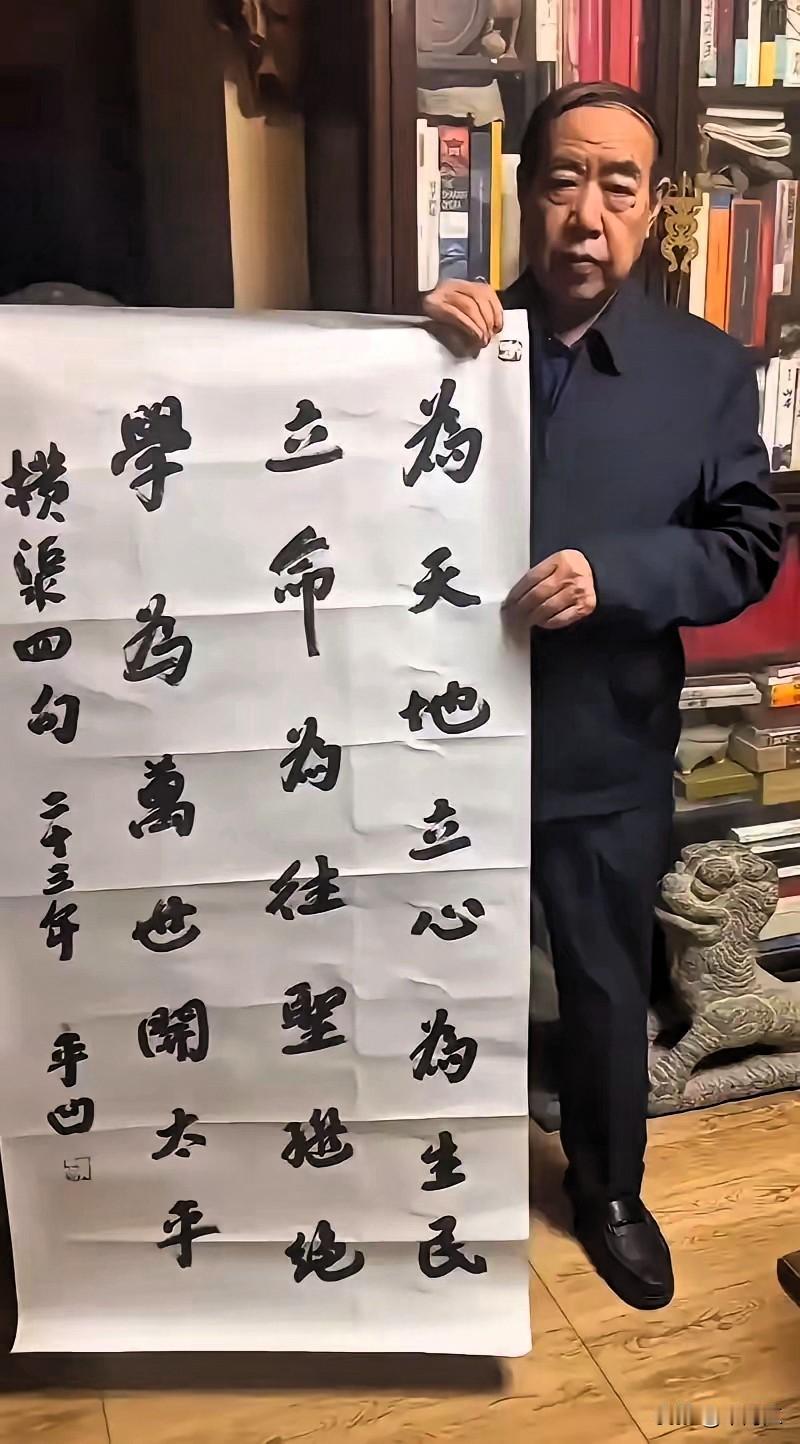 為天地立心為生民
立命為往聖繼絶
學為萬世開太平
横渠四句 二十三年 平凹
THE
OPERA